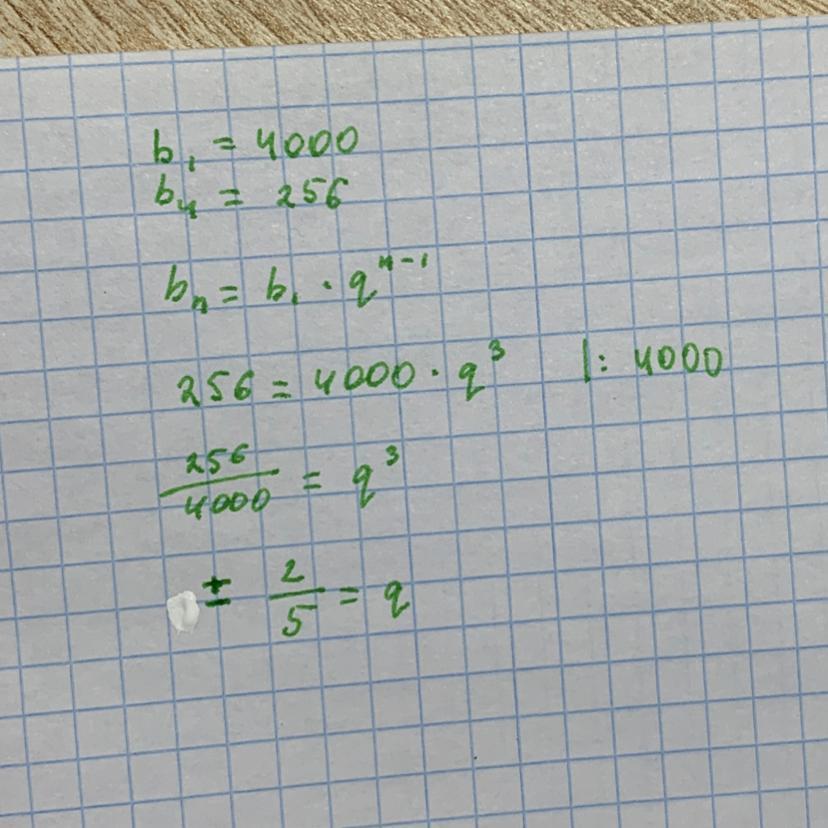 b₁ = 4000
b₄ = 256
bₙ = b₁ · qⁿ⁻¹
256 = 4000 · q³ |: 4000
256/4000 = q³
± 2/5 = q